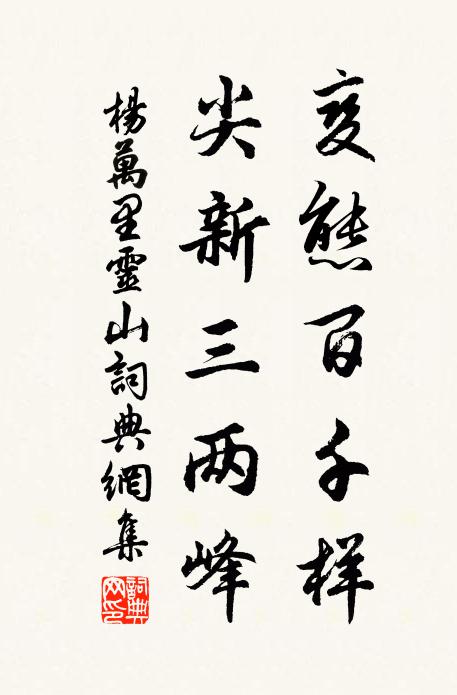 变态百千样
尖新三两峰
楊萬里靈山詞典網集
詞典网印